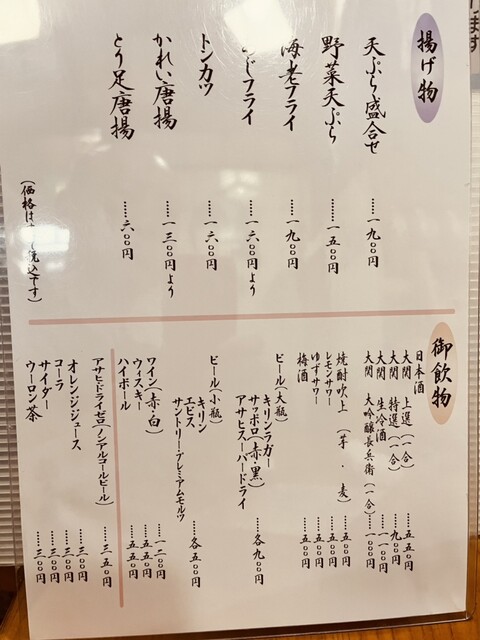 揚げ物
天ぷら盛合せ……一九〇〇円
野菜天ぷら……一五〇〇円
海老フライ……一九〇〇円
フライ……一六〇〇円より
トンカツ……一六〇〇円
かれい唐揚……一三〇〇円より
とり足唐揚……六〇〇円
(価格は 税込です)
御飲物
日本酒
大関 上選(一合)……五五〇円
大関 特選(一合)……九〇〇円
大関 生冷酒……一一〇〇円
大関 大吟醸長兵衛(一合)……一〇〇〇円
焼酎吹上(芋・麦)……五五〇円
レモンサワー……五五〇円
ゆずサワー……五五〇円
梅酒……五五〇円
ビール(大瓶)
キリンラガー
サッポロ(赤・黒)
アサヒスーパードライ
……各九〇〇円
ビール(小瓶)
キリン
エビス
サントリープレミアムモルツ
……各五五〇円
ワイン(赤・白)……一二〇〇円
ウィスキー……五五〇円
ハイボール……五五〇円
アサヒドライゼロ(ノンアルコールビール)……三五〇円
オレンジジュース……三〇〇円
コーラ……三〇〇円
サイダー……三〇〇円
ウーロン茶……三〇〇円
ます